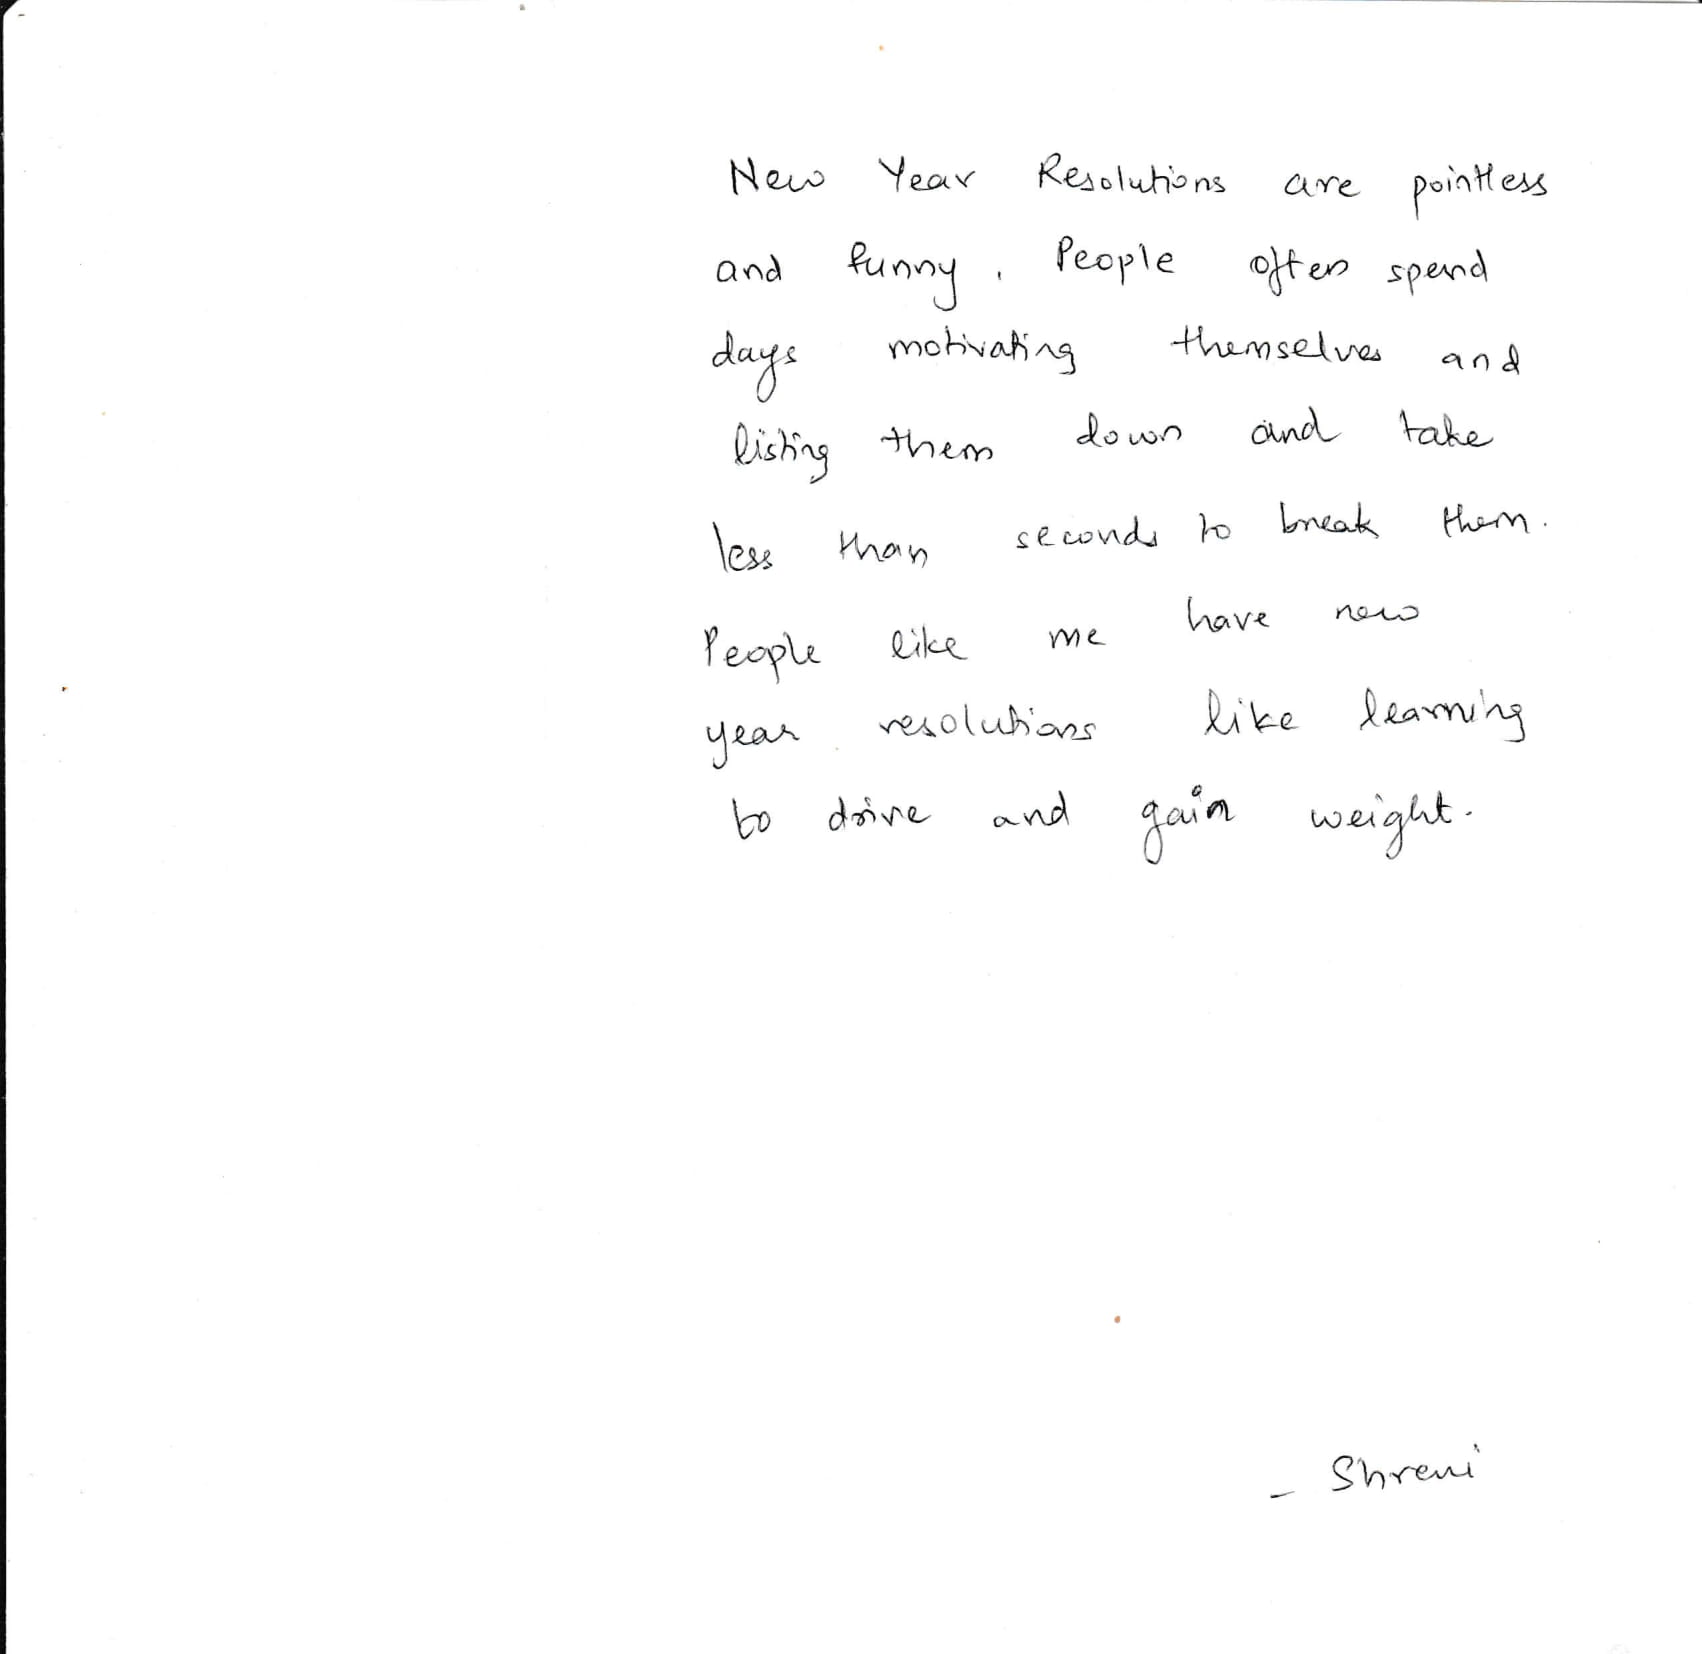 New Year Resolutions are pointless
and funny. People often spend
days motivating themselves and
listing them down and take
less than seconds to break them.
People like me have new
year resolutions like learning
to drive and gain weight.
- Shreni